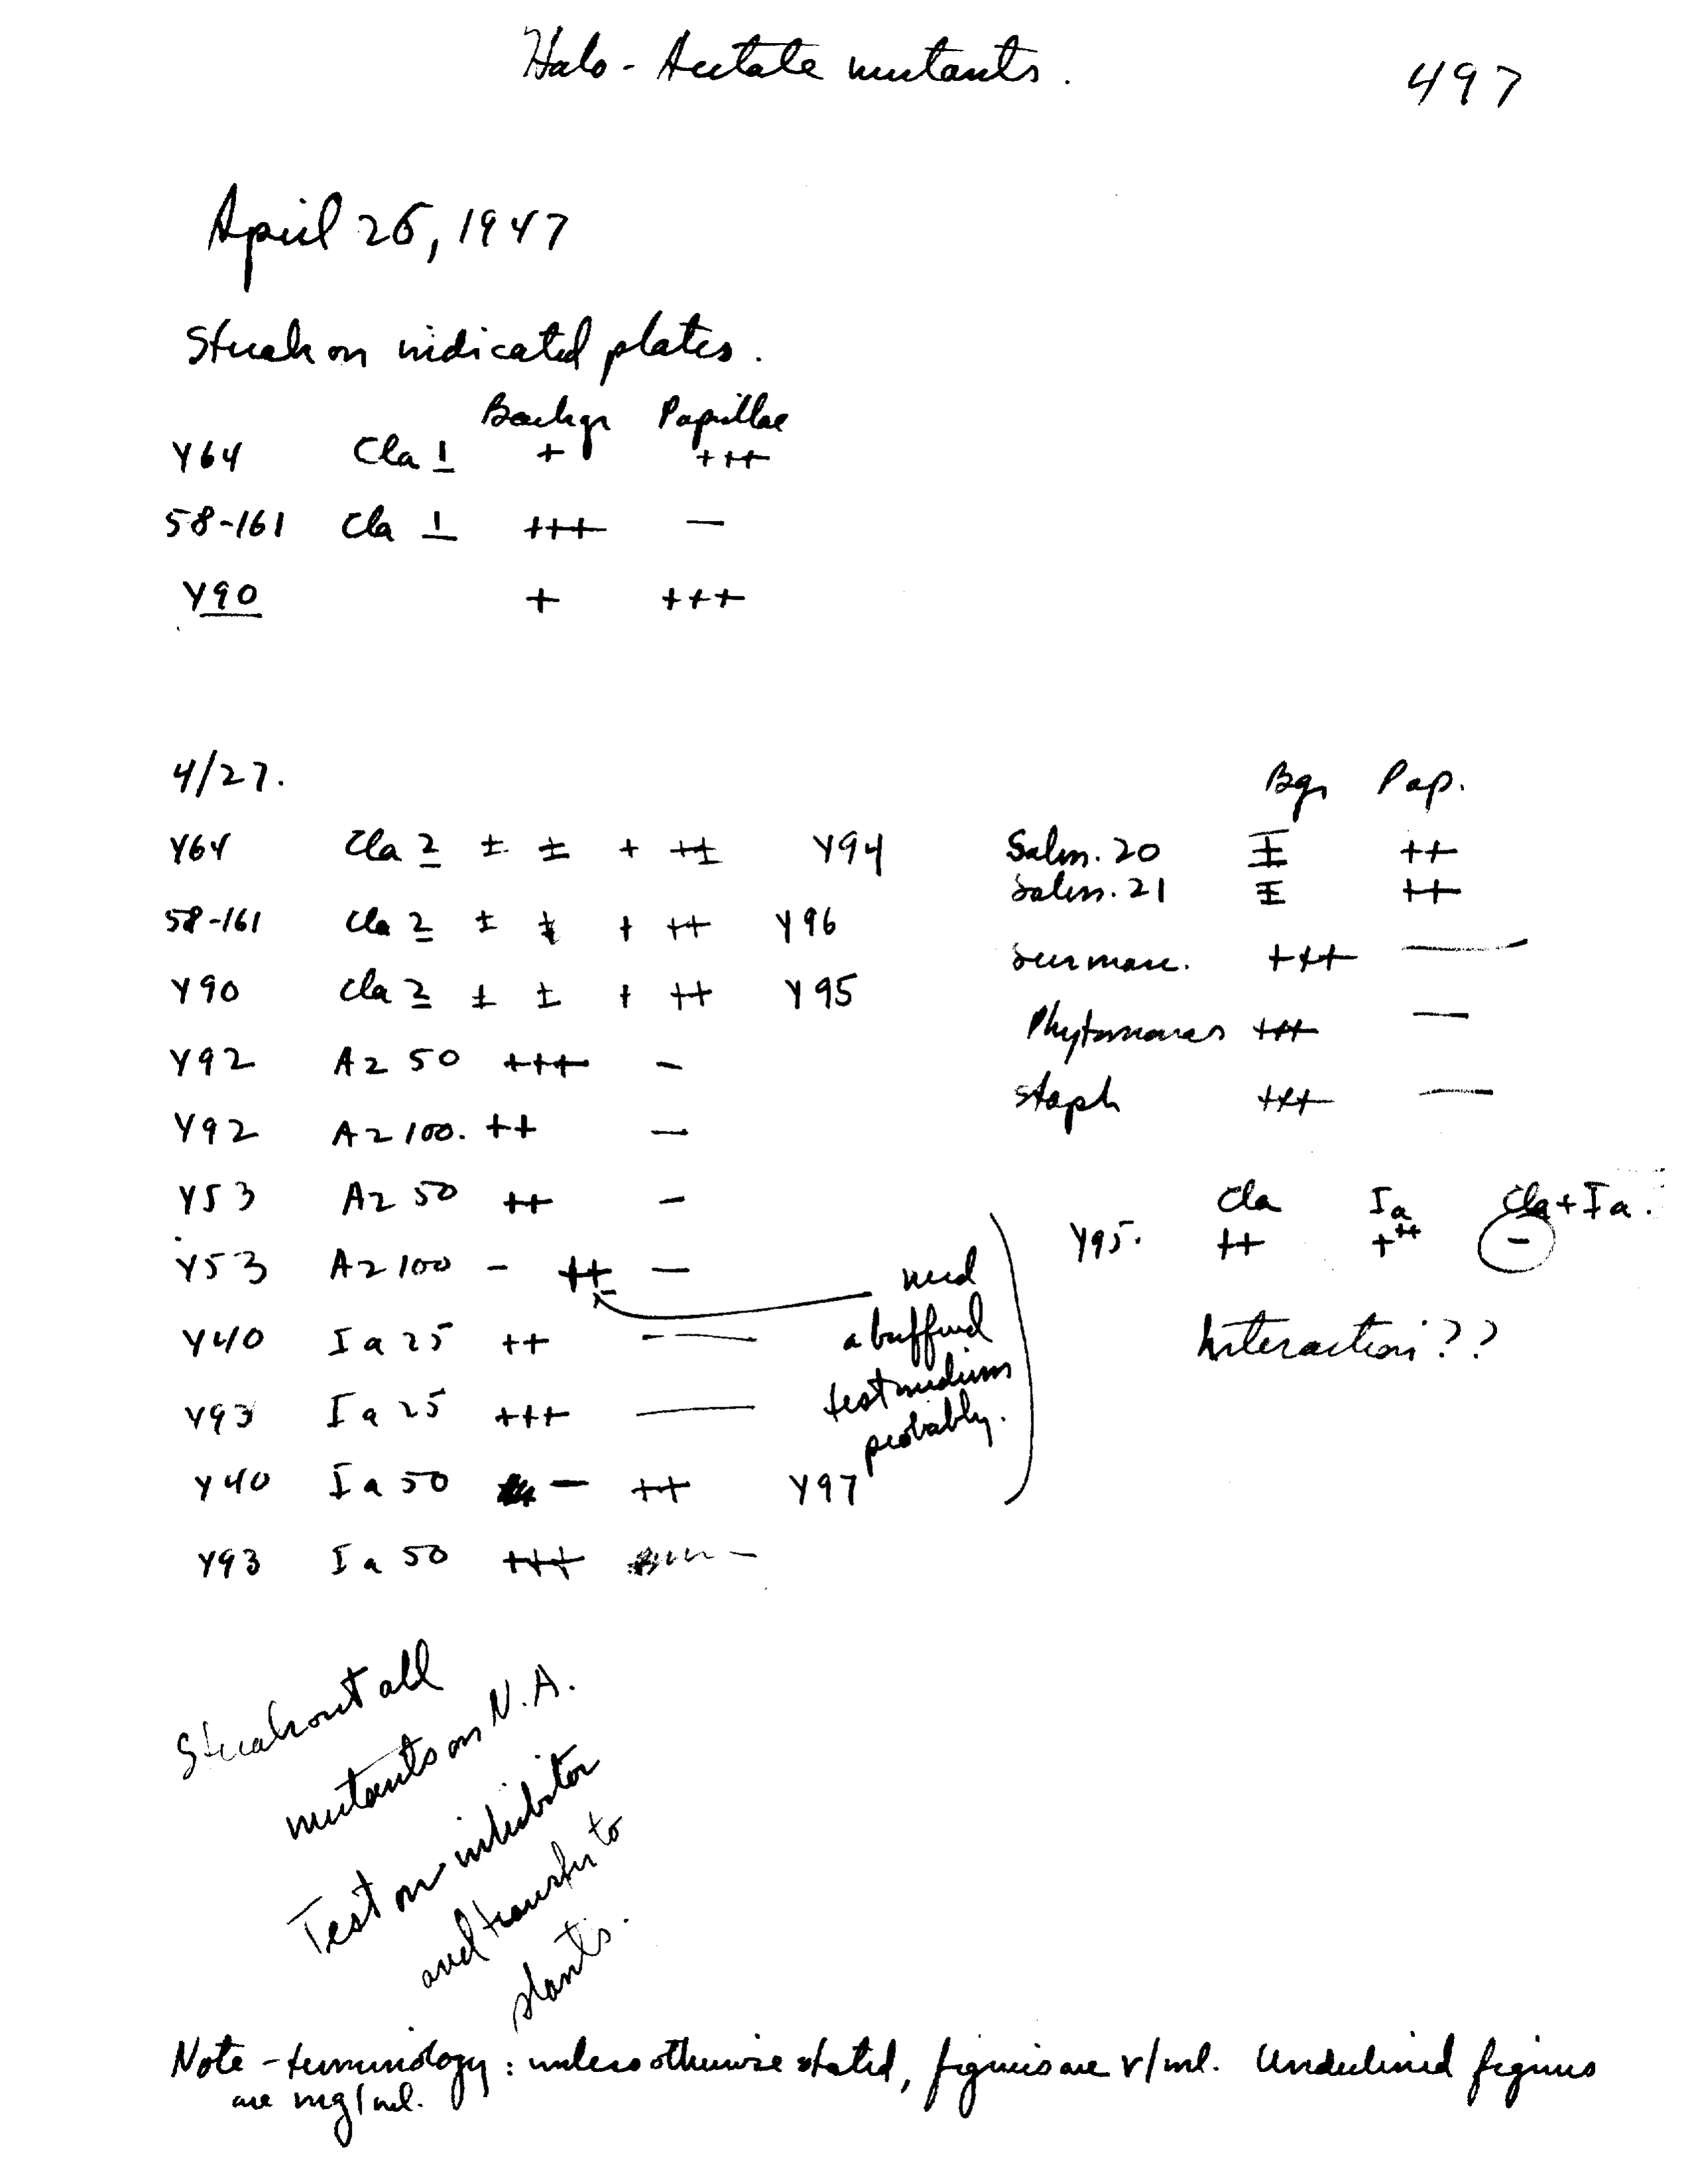 Halo-Acetate mutants.
497
April 26, 1947
Streak on indicated plates.
Backgr Papillae
Y64 Cla 1 + +++
58-161 Cla 1 +++ —
Y90 + +++
4/27.
Y64 Cla 2 ± ± + ++ Y94
58-161 Cla 2 ± ± + ++ Y96
Y90 Cla 2 ± ± + ++ Y95
Y92 Az 50 +++ -
Y92 Az 100. ++ —
Y53 Az 50 ++ -
Y53 Az 100 - ++ —
Y40 Ia 25 ++ —
Y93 Ia 25 +++ —
Y40 Ia 50 — ++ Y97
Y93 Ia 50 +++ -
need
a buffered
test medium
probably.
Bgr Pap.
Salm. 20 ± ++
Salm. 21 ± ++
Ser marc. +++ —
Phytomonas +++ —
Staph +++ —
Cla Ia Cla + Ia.
Y95. ++ +++ -
Interaction??
Streak out all
mutants on N.A.
Test on inhibitor
and transfer to
slants.
Note - terminology: unless otherwise stated, figures are γ/ml. Underlined figures
are mg/ml.